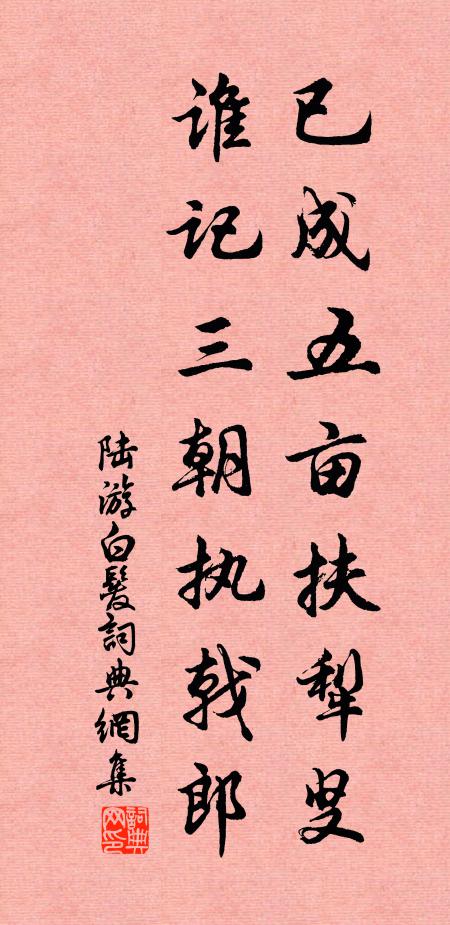 已成五亩扶犁叟
谁记三朝执戟郎
陆游白髮詞典網集
詞典網印